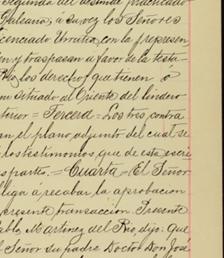 segunda del deslinde practicado
Galeano, a su vez los Señores
icenciado Urrutia, con la represen
en y traspasan a favor de la testa-
los derechos que tienen o
situado al Oriente del lindero
terior = Tercera = Los tres contra
en el plano adjunto del cual se
los testimonios que de esta escri
partes. = Cuarta = El Señor
liga á recabar la aprobacion
presente transaccion. Presente
ablo, Martinez del Rio, dijo: que
el Señor su padre Doctor Don José